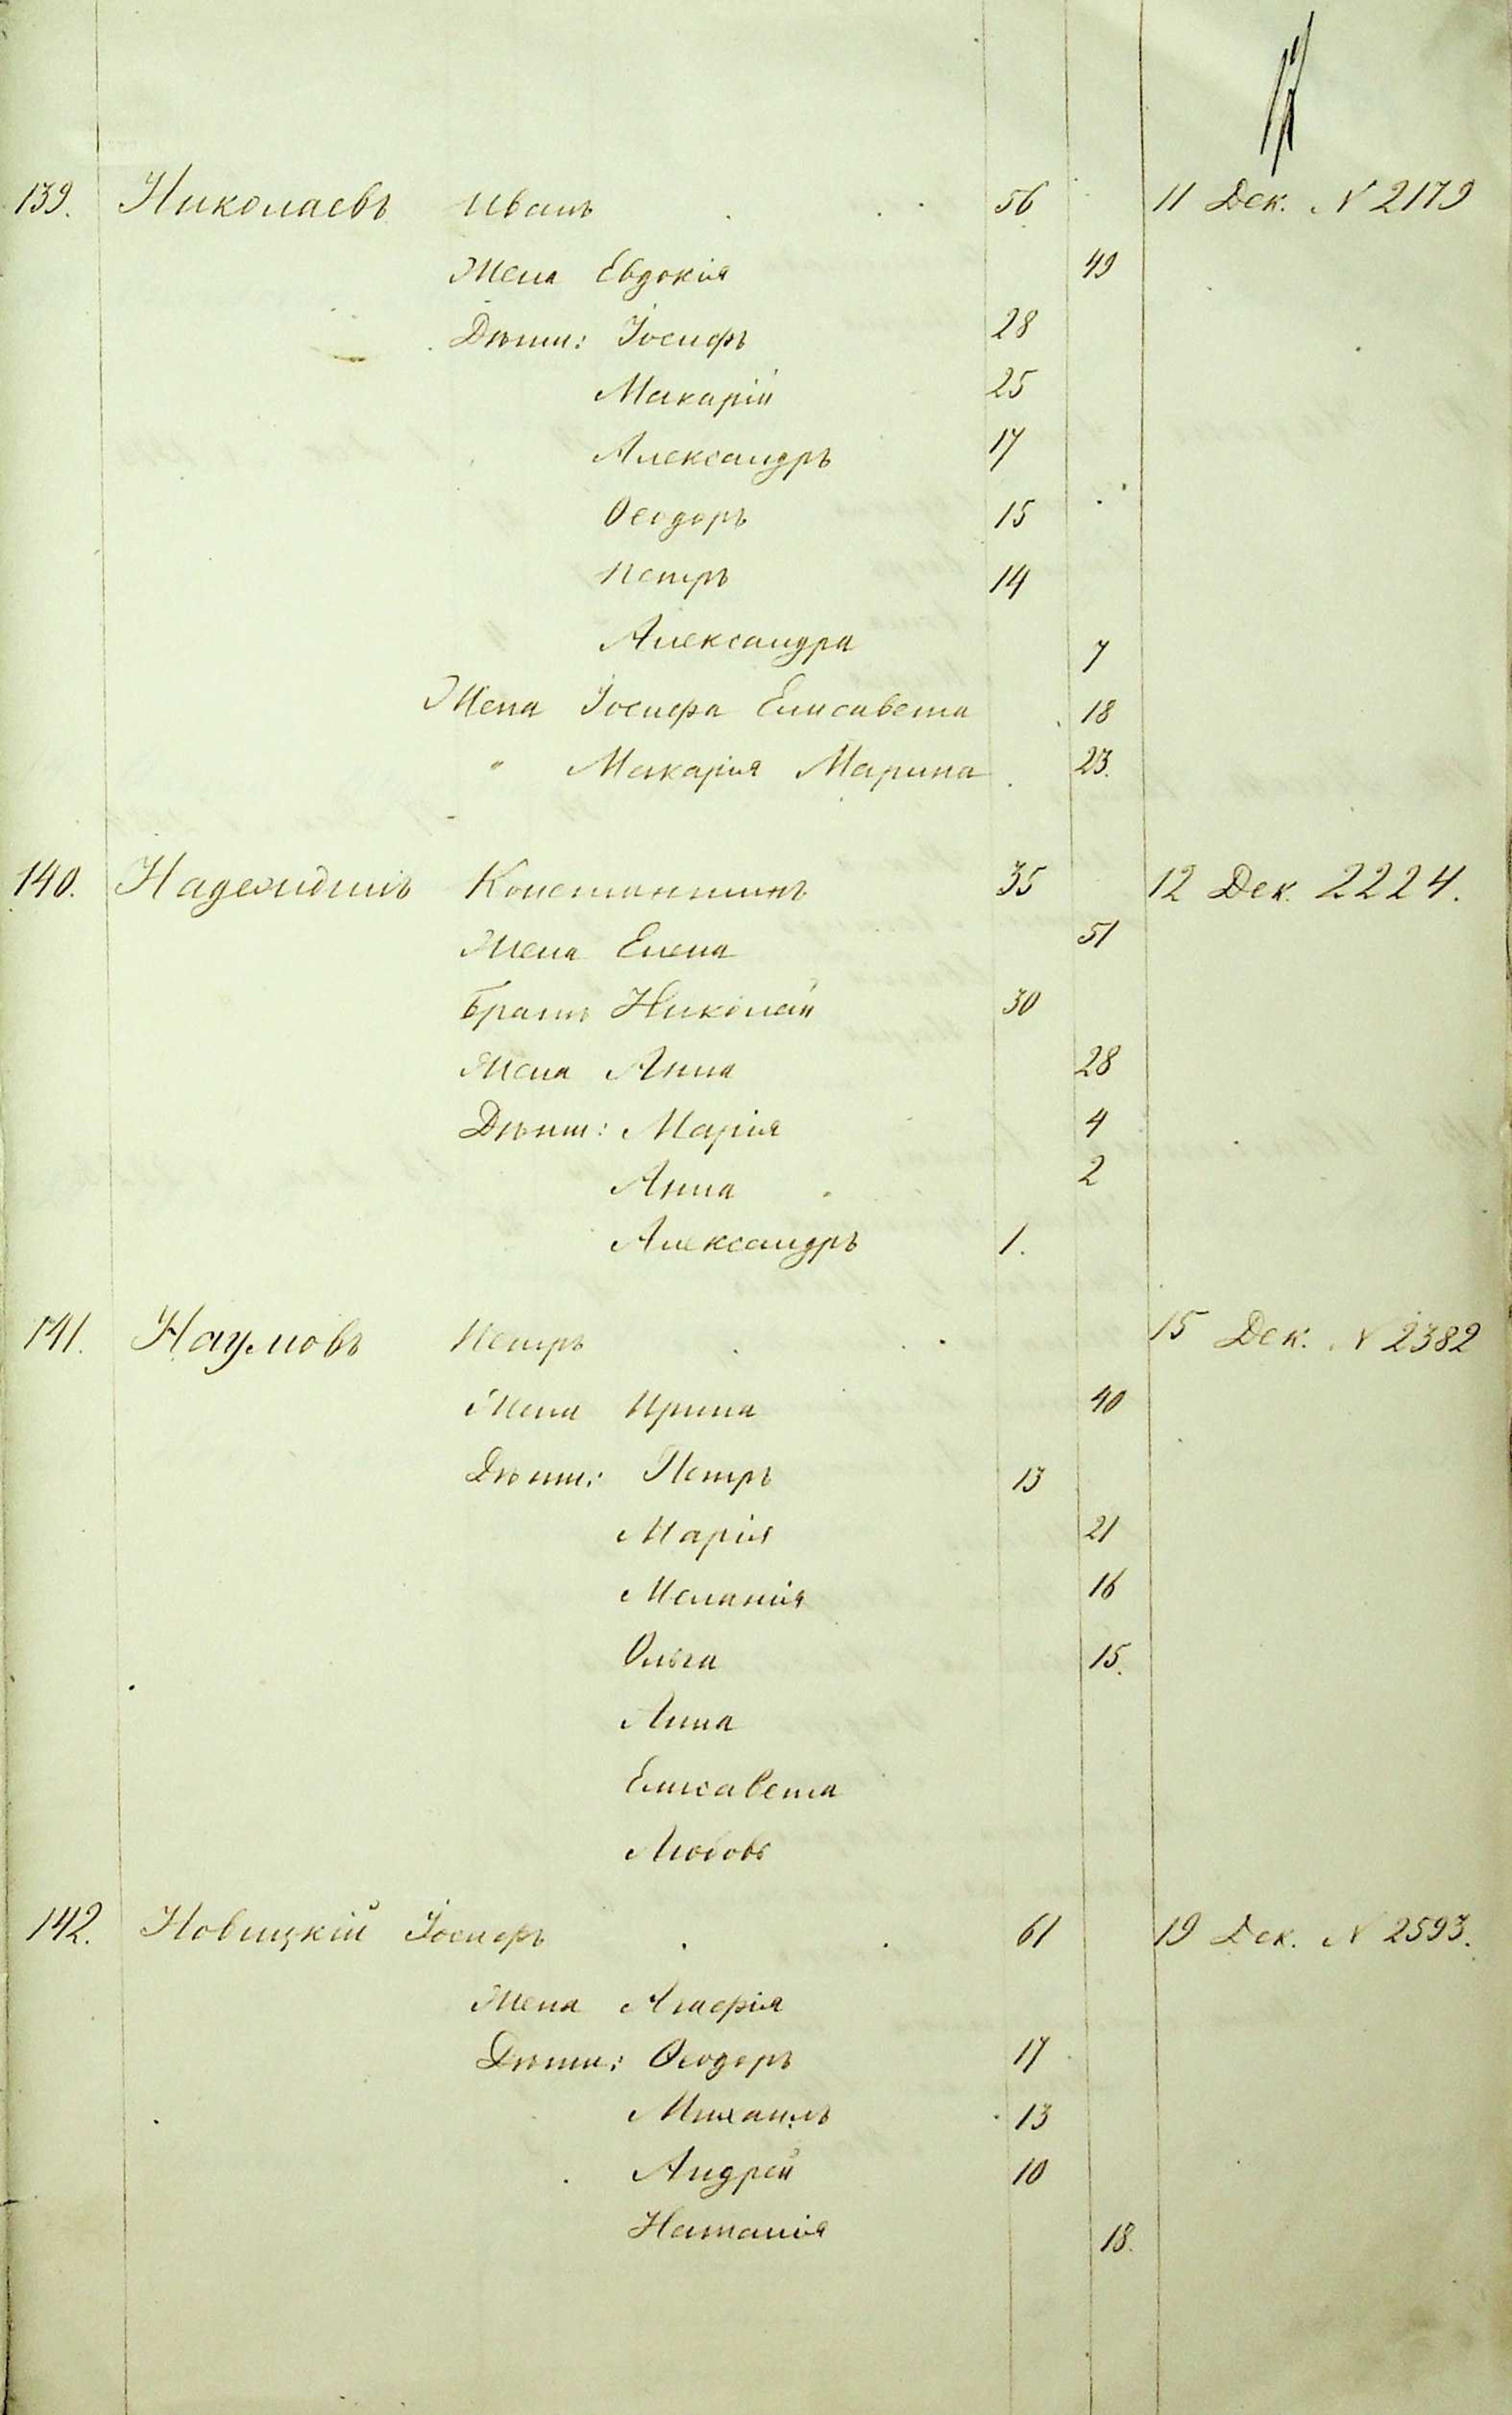 139. Николаевъ Иванъ 56 11 Дек. N 2179
Жена Евдокія 49
Дѣти: Іосифъ 28
Макарій 25
Александръ 17
Ѳеодоръ 15
Петръ 14
Александра 7
Жена Іосифа Елисавета 18
" Макарія Марина 23.
140. Надеждинъ Константинъ 35 12 Дек. 2224.
Жена Елена 51
Братъ Николай 30
Жена Анна 28
Дѣти: Марія 4
Анна 2
Александръ 1.
141. Наумовъ Петръ 15 Дек. N 2382
Жена Ирина 40
Дѣти: Петръ 13
Марія 21
Меланія 16
Ольга 15.
Анна
Елисавета
Любовь
142. Новицкій Іосифъ 61 19 Дек. N 2593.
Жена Агафія
Дѣти: Ѳеодоръ 17
Михаилъ 13
Андрей 10
Наталія 18.